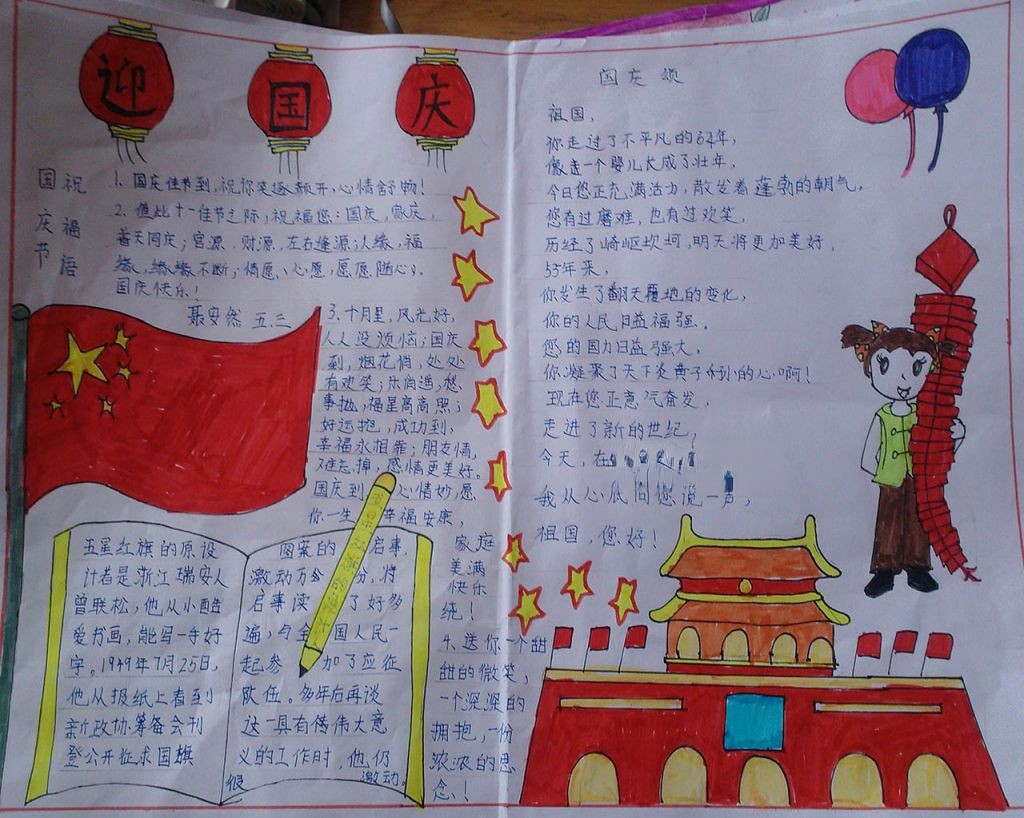 迎国庆
国庆节
祝福语
1. 国庆佳节到，祝你笑逐颜开，心情舒畅！
2. 值此十一佳节之际，祝福您：国庆，家庆，
普天同庆；官源，财源，左右逢源；人缘，福
缘，缘缘不断；情愿、心愿，愿愿随心。
国庆快乐！
聂安然 五.三
3.十月里，风光好，
人人没烦恼；国庆
到，烟花俏，处处
有欢笑；乐逍遥，愁
事抛，福星高高照；
好运抱，成功到，
幸福永相靠；朋友情，
难忘掉，感情更美好。
国庆到 心情妙，愿
你一生 幸福安康，
家庭
美满
快乐
绕！
4.送你一个甜
甜的微笑，
一个深深的
拥抱，一份
浓浓的思
念！
五星红旗的原设
计者是浙江瑞安人
曾联松，他从小酷
爱书画，能写一手好
字。1949年7月25日，
他从报纸上看到
新政协筹备会刊
登公开征求国旗
图案的 启事，
激动万分 分，将
启事读 了好多
遍，与全 国人民一
起参 加了应征
队伍。多年后再谈
这一具有伟大意
义的工作时，他仍
很 激动。
国庆颂
祖国，
你走过了不平凡的62年，
像走一个婴儿大成了壮年，
今日您正充满活力，散发着蓬勃的朝气。
您有过磨难，也有过欢笑，
历经了崎岖坎坷，明天将更加美好，
53年来，
你发生了翻天覆地的变化，
你的人民日益福强、
您的国力日益强大，
你凝聚了天下炎黄子孙的心啊！
现在您正意气奋发，
走进了新的世纪，
今天，在
我从心底向您说一声，
祖国，您好！